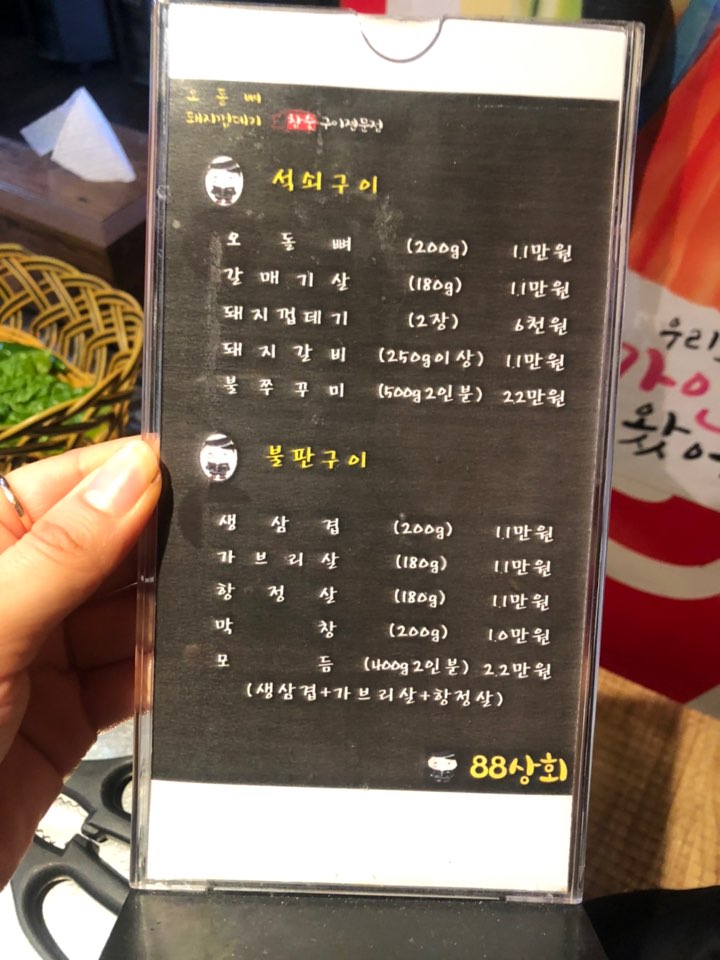 오돌뼈
돼지껍데기 구이전문점
석쇠구이
오돌뼈 (200g) 1.1만원
갈매기살 (180g) 1.1만원
돼지껍데기 (2장) 6천원
돼지갈비 (250g이상) 1.1만원
불쭈꾸미 (500g2인분) 2.2만원
불판구이
생삼겹 (200g) 1.1만원
가브리살 (180g) 1.1만원
항정살 (180g) 1.1만원
막창 (200g) 1.0만원
모듬 (400g2인분) 2.2만원
(생삼겹+가브리살+항정살)
88상회
우리